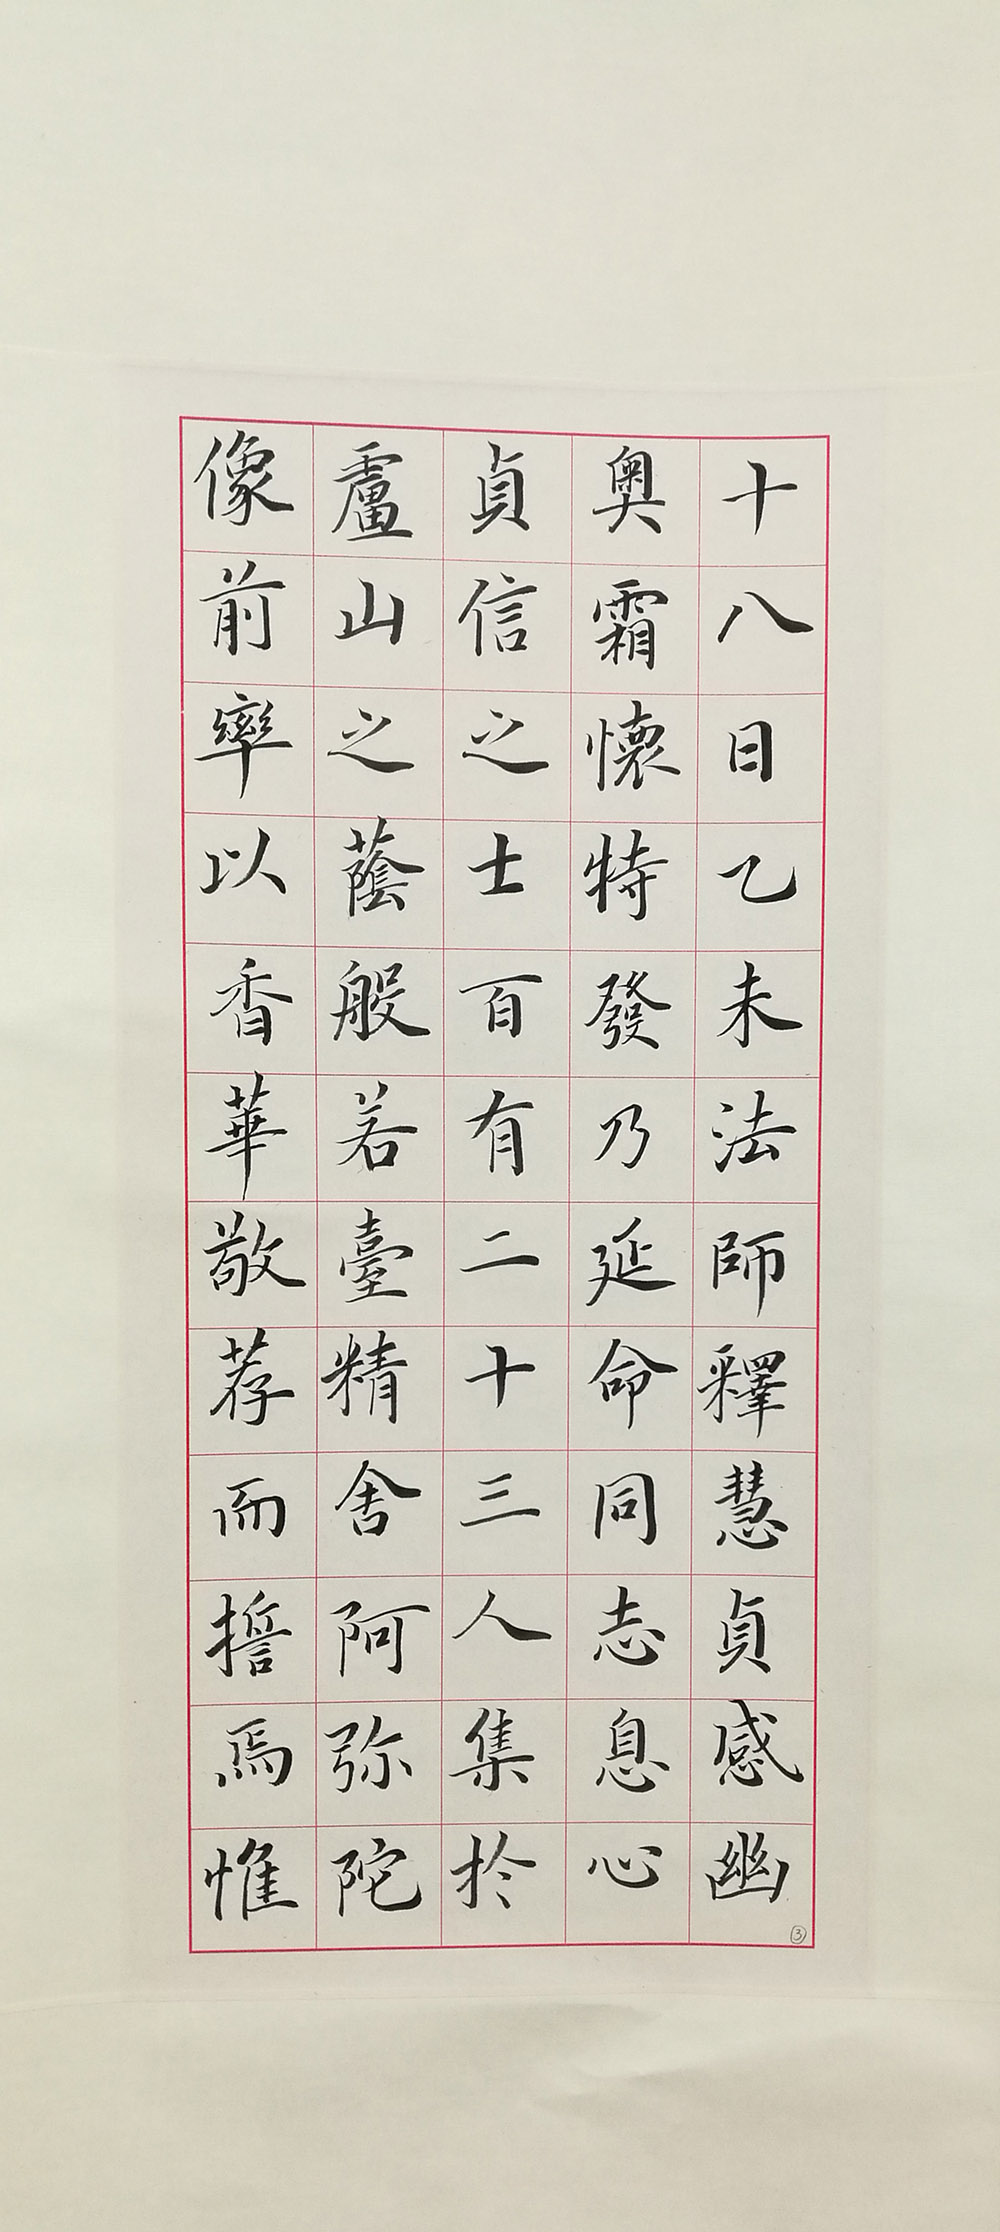 十八日乙未法師釋慧貞感幽
奧霜懷特發乃延命同志息心
貞信之士百有二十三人集於
廬山之蔭般若臺精舍阿弥陀
像前率以香華敬荐而誓焉惟
③